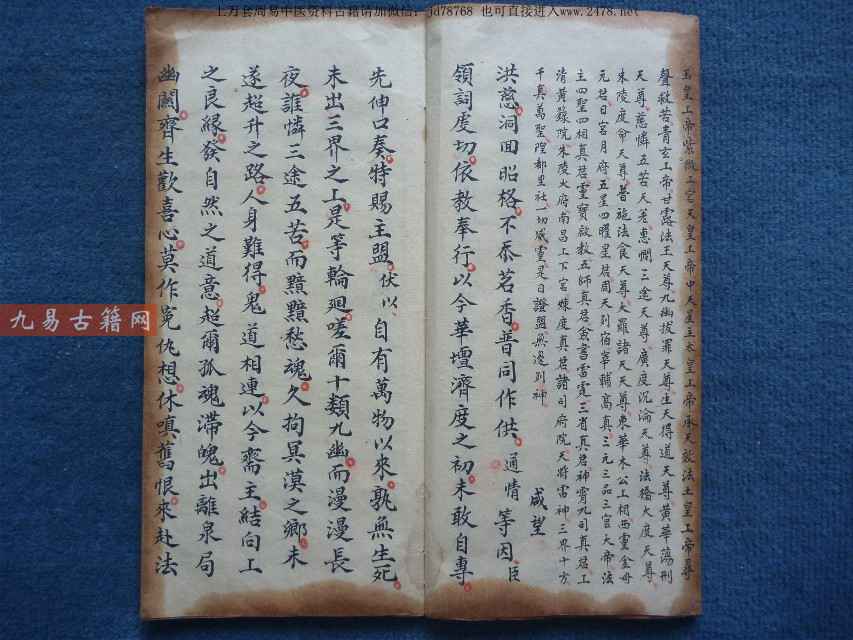 上万套周易中医资料古籍请加微信：jd78768 也可直接进入www.2478.net
玉皇上帝紫微上宮天皇上帝中天星主木皇上帝承天效法土皇上帝尋
聲救苦青玄上帝甘露法王天尊九幽拔罪天尊生天得道天尊黃華蕩刑
天尊慈憐五苦天尊惠憫三途天尊廣度沉淪天尊法橋大度天尊
朱陵度命天尊普施法食天尊大羅諸天天尊東華木公上相西靈金母
元君日宮月府五星四曜星君周天列宿宰輔高真三元三品三官大帝法
主四聖四相真君靈寶啟教五師真君僉書雷霆三省真君神霄九司真君上
清黃籙院朱陵火府南昌上下宮煉度真君諸司府院天將雷神三界十方
千真萬聖隍都里社一切威靈是日證盟無邊列神
咸望
洪慈洞回昭格不忝茗香普同作供通情等因臣
領詞虔切依教奉行以今華壇濟度之初未敢自專
先伸口奏特賜主盟伏以自有萬物以來孰無生死
未出三界之上是等輪迴嗟爾十類九幽而漫漫長
夜誰憐三途五苦而黯黯愁魂久拘冥漠之鄉未
遂超升之路人身難得鬼道相連以今齋主結向上
之良緣發自然之道意超爾孤魂滯魄出離泉局
幽關齊生歡喜心莫作冤仇想休嗔舊恨來赴法
九易古籍网